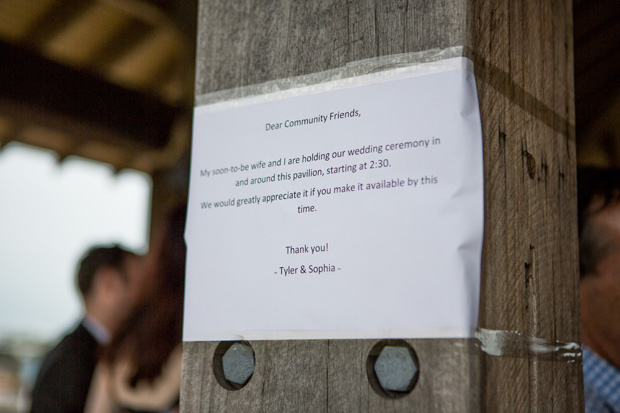 Dear Community Friends,
My soon-to-be wife and I are holding our wedding ceremony in
and around this pavilion, starting at 2:30.
We would greatly appreciate it if you make it available by this
time.
Thank you!
- Tyler & Sophia -